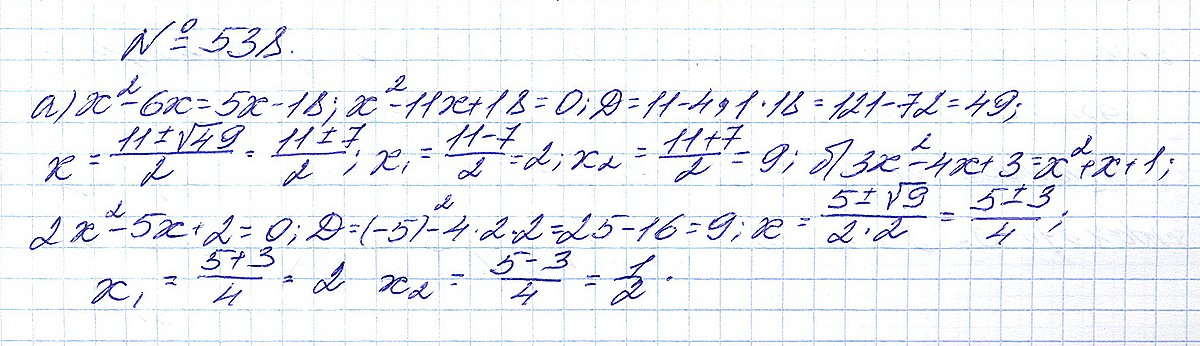 № 538.
а) x² - 6x = 5x - 18; x² - 11x + 18 = 0; Д = 11 - 4·1·18 = 121 - 72 = 49;
x = (11 ± √49)/2 = (11 ± 7)/2; x₁ = (11 - 7)/2 = 2; x₂ = (11 + 7)/2 = 9; б) 3x² - 4x + 3 = x² + x + 1;
2x² - 5x + 2 = 0; Д = (-5)² - 4·2·2 = 25 - 16 = 9; x = (5 ± √9)/(2·2) = (5 ± 3)/4;
x₁ = (5 + 3)/4 = 2 x₂ = (5 - 3)/4 = 1/2.